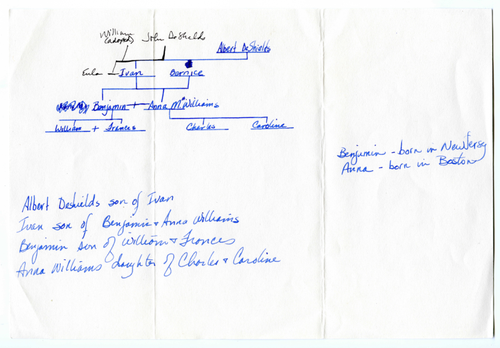 William
(adopted)
John DeShields
Albert DeShields
Eula
Ivan
Bernice
Benjamin + Anna M Williams
William + Frances
Charles
Caroline
Benjimin - born in New Jersy
Anna - born in Boston
Albert Deshields son of Ivan
Ivan son of Benjamin & Anna Williams
Benjimin son of William & Frances
Anna Williams daughter of Charles & Caroline